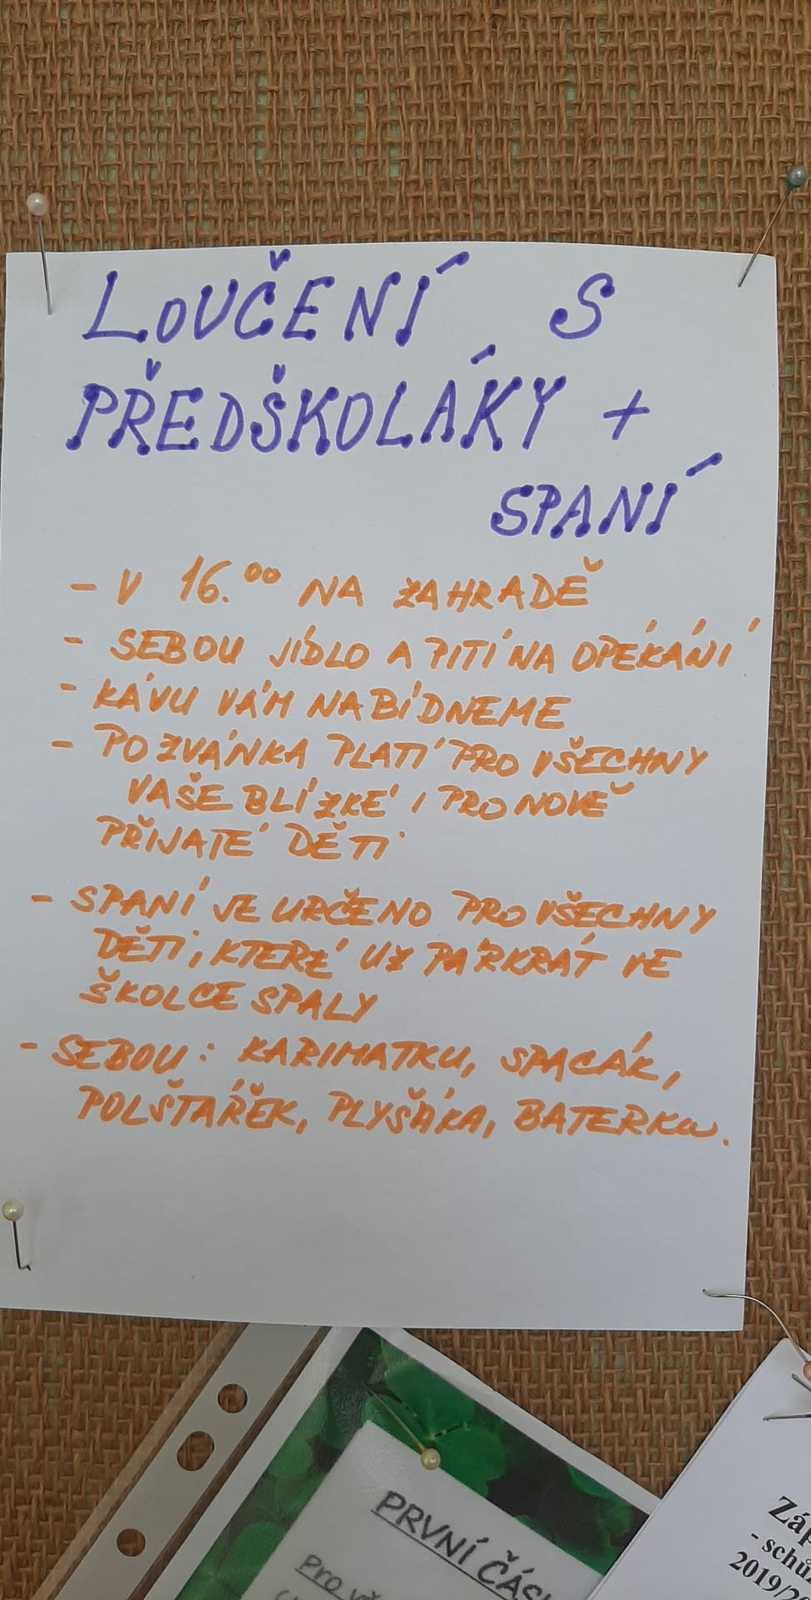 LOUČENÍ S
PŘEDŠKOLÁKY +
SPANÍ
- V 16.00 NA ZAHRADĚ
- SEBOU JÍDLO A PITÍ NA OPÉKÁNÍ
- KÁVU VÁM NABÍDNEME
- POZVÁNKA PLATÍ PRO VŠECHNY
VAŠE BLÍZKÉ I PRO NOVĚ
PŘIJATÉ DĚTI
- SPANÍ JE URČENO PRO VŠECHNY
DĚTI, KTERÉ UŽ PÁRKRÁT VE
ŠKOLCE SPALY
- SEBOU: KARIMATKU, SPACÁK,
POLŠTÁŘEK, PLYŠÁKA, BATERKU.
PRVNÍ
Pro
2019/